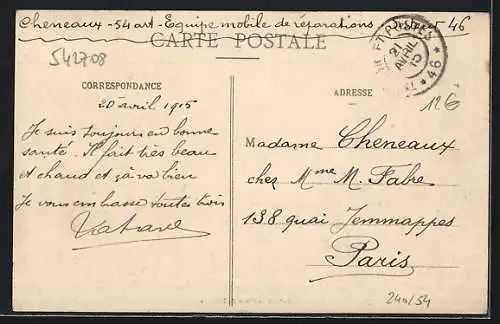 Cheneaux - 54 art - Equipe mobile de réparations Secteur 46
CARTE POSTALE
542708
21
AVRIL
15
* 46 *
CORRESPONDANCE
20 avril 1915
Je suis toujours en bonne
santé. Il fait très beau
et chaud et çà va bien
Je vous embrasse toutes trois
ADRESSE
126
Madame Cheneaux
chez Mme M. Fabre
138 quai Jemmappes
Paris
240/54